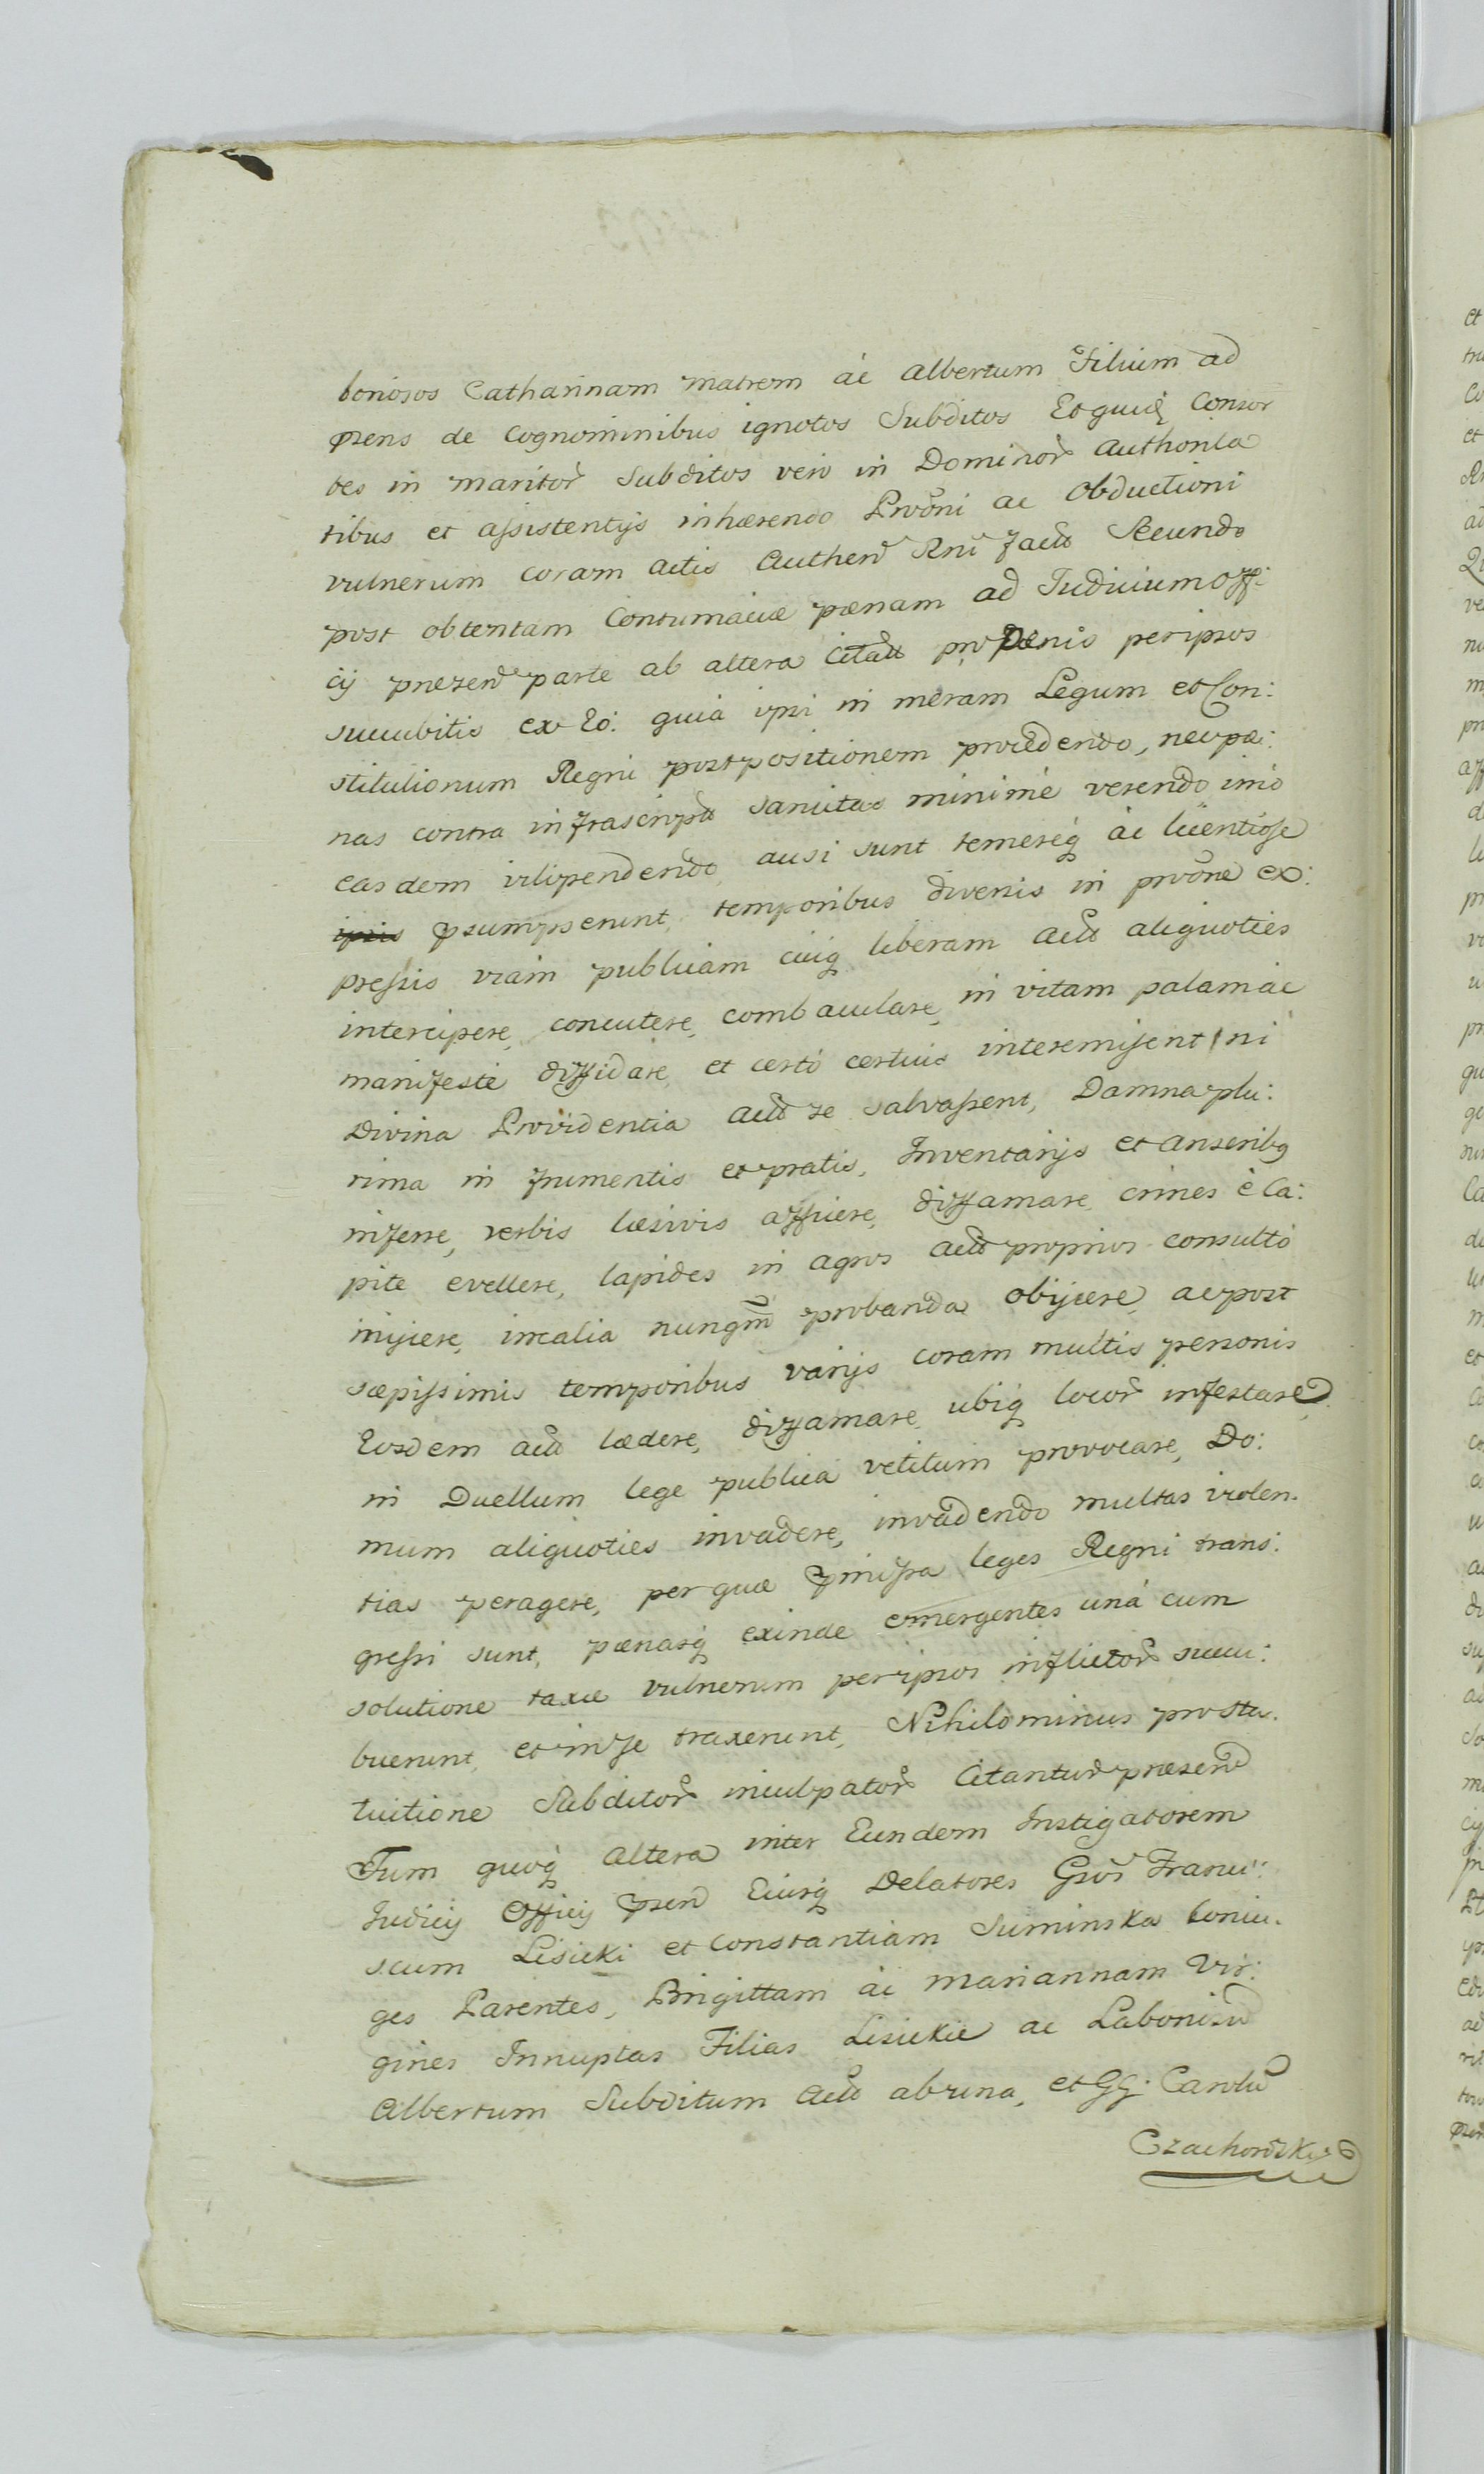 boriosos Catharinam matrem ac Albertum Filium ad
prens de Cognominibus ignotos Subditos Et quid Consor
tes in maritor Subditos vero in Dominor Authorita
tibus et assistentijs inhærendo Prvoni ac Obductioni
vulnerum coram actis Authen Rni fact Secundo
post obtentam Contumaciæ pænam ad Judicium Offi:
cij præsen parte ab altera Citatt pro Pænis per ipsos
succubitis ex Eo: quia ipsi in meram Legum et Con:
stitutionum Regni postpositionem procedendo, nec pæ:
nas contra infrascript sancitas minime verendo imo
easdem vilipendendo, ausi sunt temereq ac licentiose
ipsis psumpserunt, temporibus diversis in prvone ex:
pressis viam publicam cuiq liberam Actt aliquoties
intercipere, concutere, combaculare, in vitam palam ac
manifeste diffidare, et certo certius interemissent, ni
Divina Providentia Actt se salvassent, Damna plu:
rima in frumentis et pratis, Inventarijs et Anseribq
inferre, verbis læsivis afficere, diffamare, crines è Ca:
pite evellere, lapides in agros Actt proprios consulto
inijcere, irrealia nunqm probanda obijcere, ac post
sæpissimis temporibus varijs coram multis personis
Eosdem Actt lædere, diffamare, ubiq locor infestare,
in Duellum lege publica vetitum provocare, Do:
mum aliquoties invadere, invadendo multas violen.
tias peragere, per quæ pmissa leges Regni trans:
gressi sunt, pænasq exinde emergentes unà cum
solutione taxæ vulnerum per ipsos inflictor succu:
buerunt, et in se traxerunt, Nihilominus pro sta.
tuitione Subditor inculpator Citantur præsen
Tum quoq Altera inter Eundem Instigatorem
Judicij Officij psen Eiusq Delatores Gsos Franci:
scum Lisicki et Constantiam Suminska Coniu.
ges Parentes, Brigittam ac Mariannam Vir:
gines Innuptas Filias Lisickie ac Laborios
Albertum Subditum Actt ab una, et GG. Carolu
Czachorski